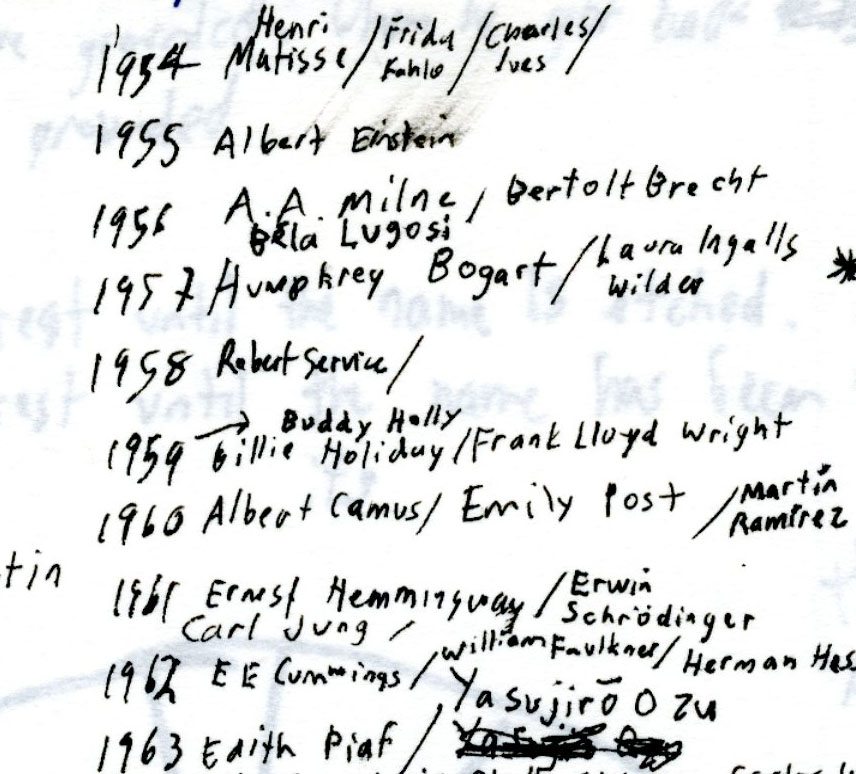 Henri
1954 Matisse / Frida Kahlo / Charles Ives /
1955 Albert Einstein
1956 A.A. Milne / Bertolt Brecht
Béla Lugosi
1957 Humphrey Bogart / Laura Ingalls Wilder
1958 Robert Service /
→ Buddy Holly
1959 Billie Holiday / Frank Lloyd Wright
1960 Albert Camus / Emily Post / Martin Ramirez
tin
1961 Ernest Hemmingway / Erwin Schrödinger
Carl Jung /
1962 E E Cummings / William Faulkner / Herman Hess
Yasujirō Ozu
1963 Edith Piaf /